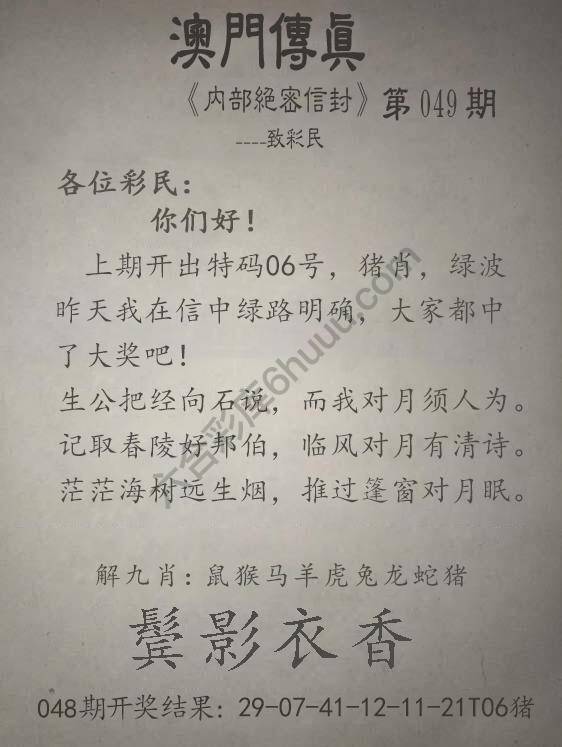 澳門傳真
《内部絕密信封》第049期
----致彩民
各位彩民：
你们好！
上期开出特码06号，猪肖，绿波
昨天我在信中绿路明确，大家都中
了大奖吧！
生公把经向石说，而我对月须人为。
记取春陵好邦伯，临风对月有清诗。
茫茫海树远生烟，推过篷窗对月眠。
解九肖：鼠猴马羊虎兔龙蛇猪
鬓影衣香
048期开奖结果：29-07-41-12-11-21T06猪
六合彩库6huuu.com